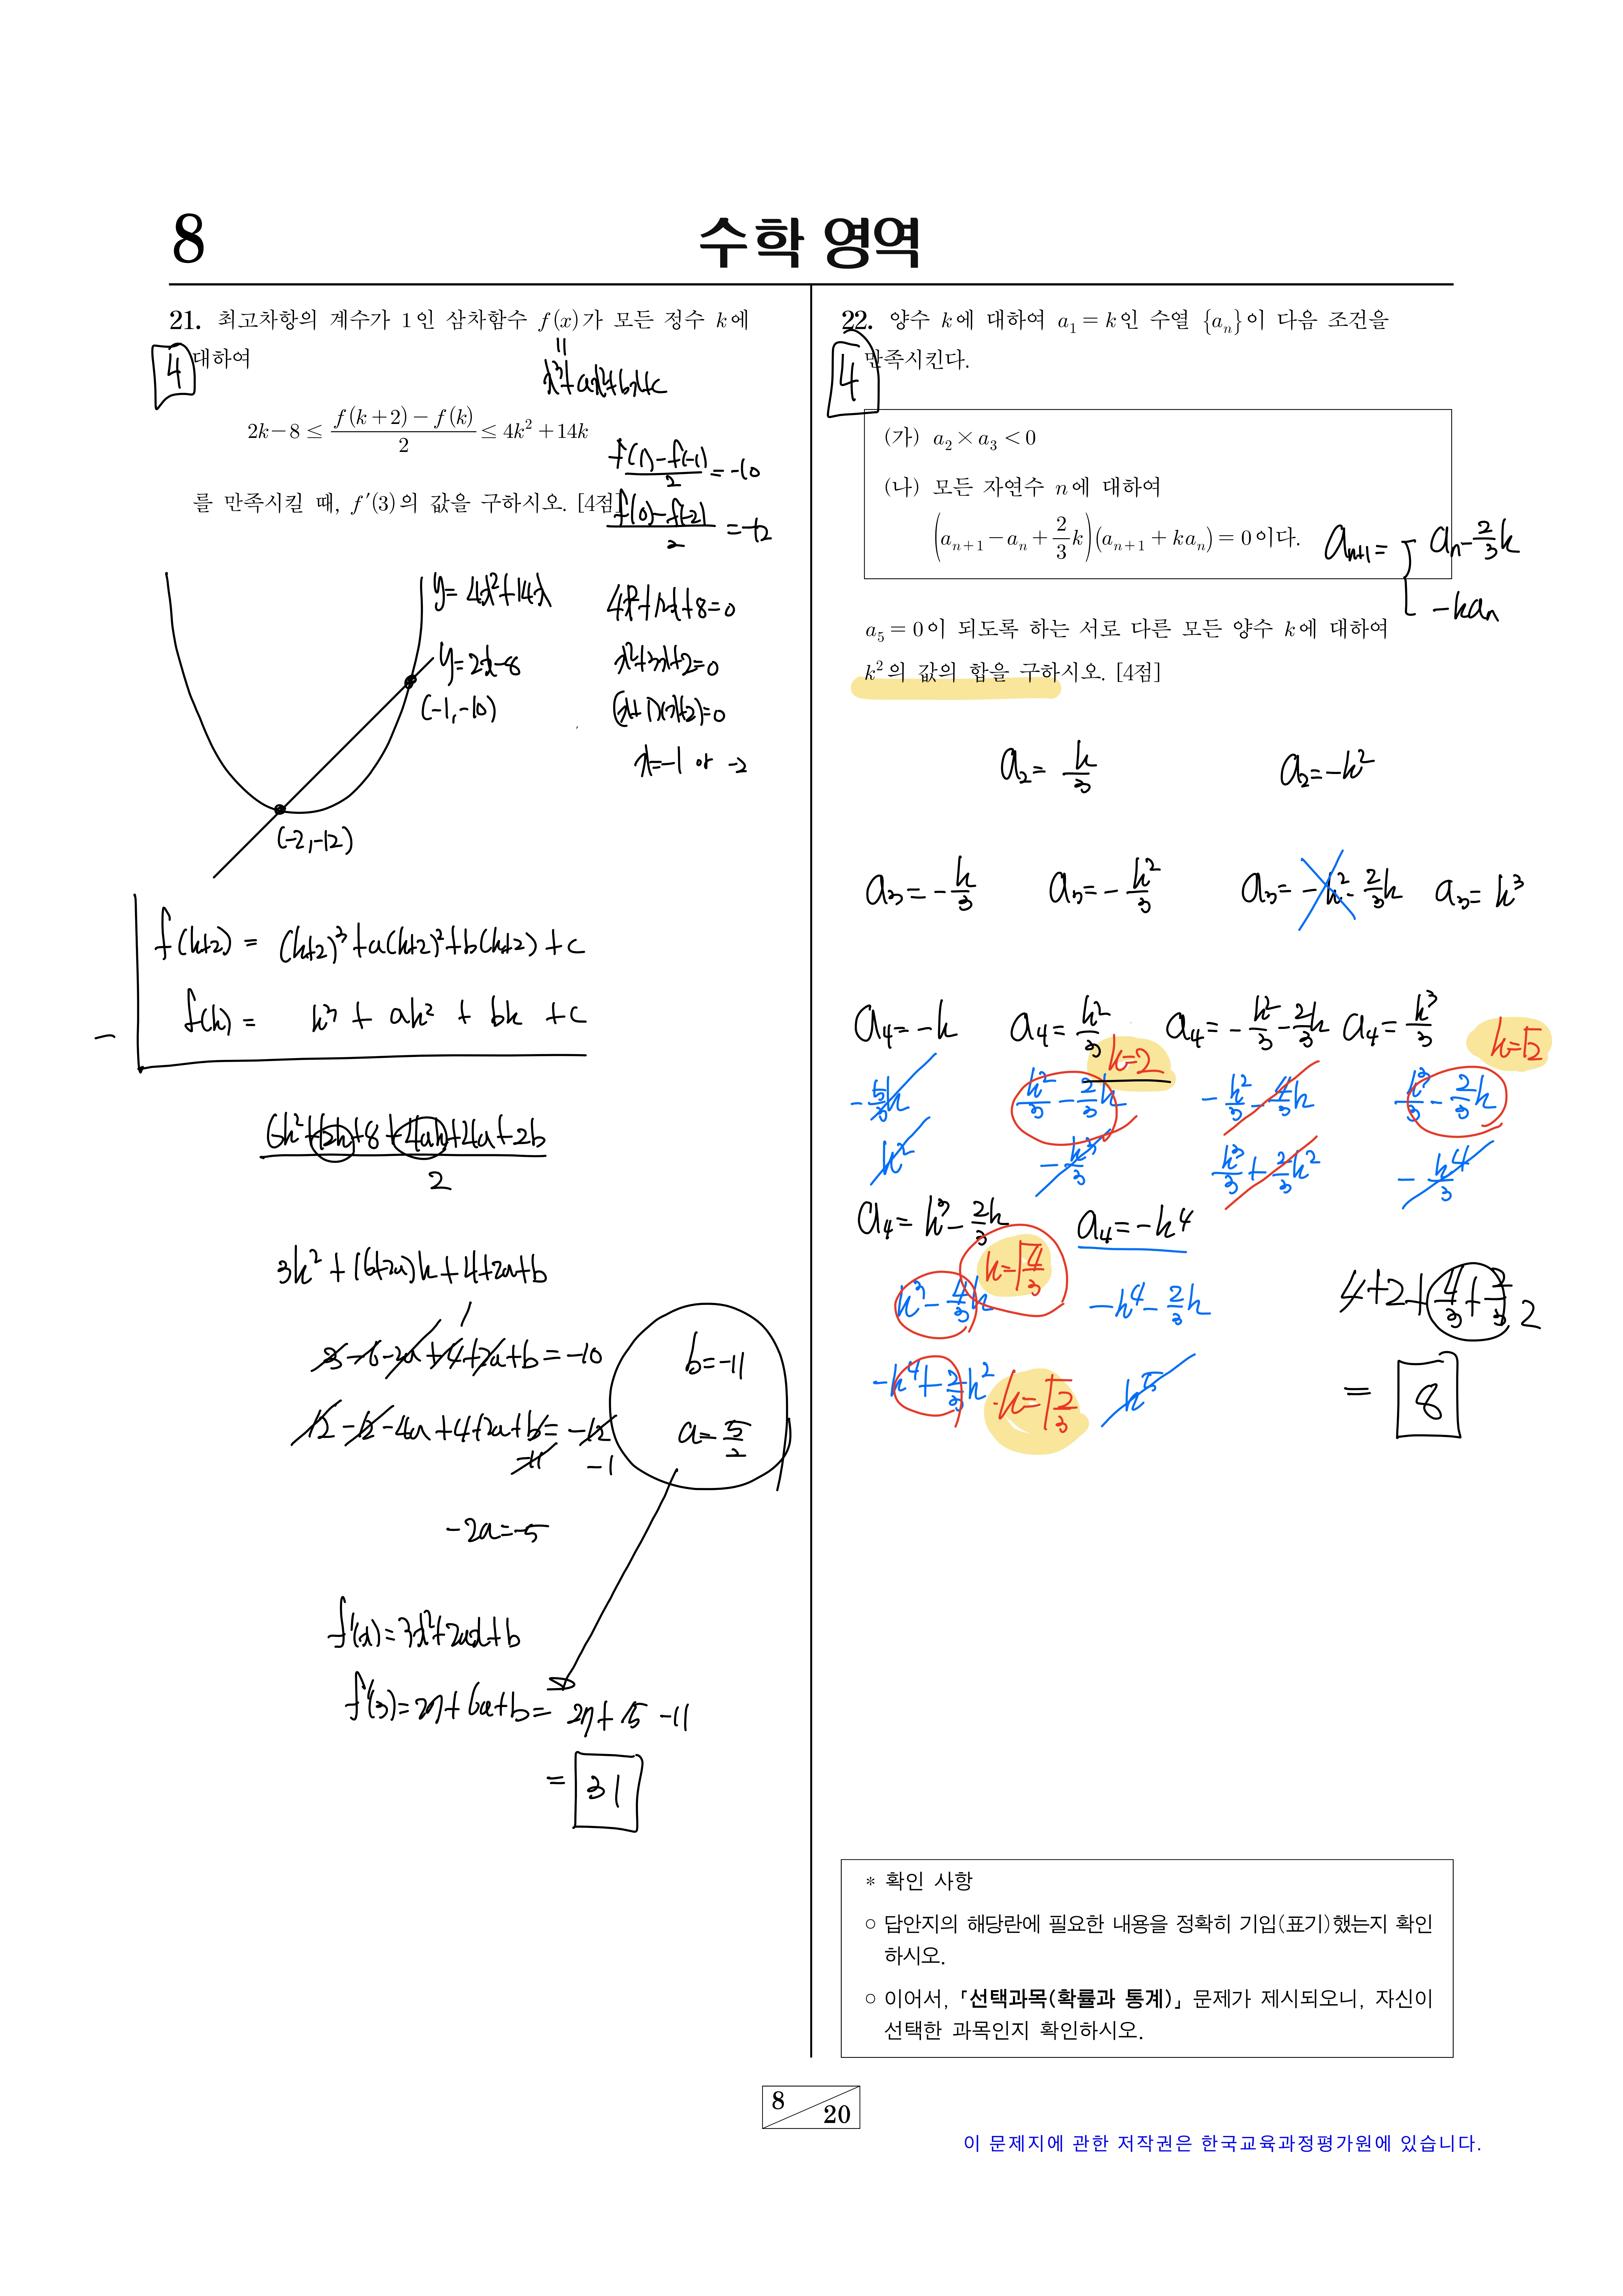 8
수학 영역
21. 최고차항의 계수가 1인 삼차함수 f(x)가 모든 정수 k에
대하여
4
=
x³+ax²+bx+c
2k-8 ≤ (f(k+2)-f(k))/2 ≤ 4k²+14k
를 만족시킬 때, f′(3)의 값을 구하시오. [4점]
(f(1)-f(-1))/2 = -10
(f(0)-f(-2))/2 = -12
y=4x²+14x
y=2x-8
(-1,-10)
(-2,-12)
4x²+12x+8=0
x²+3x+2=0
(x+1)(x+2)=0
x=-1 or -2
f(k+2) = (k+2)³+a(k+2)²+b(k+2)+c
- f(k) = k³ + ak² + bk + c
(6k²+12k+8+4ak+4a+2b)/2
3k²+(6+2a)k+4+2a+b
3-6-2a+4+2a+b=-10
12-12-4a+4+2a+b=-12
-11 -1
b=-11
a=5/2
-2a=-5
f′(x)=3x²+2ax+b
f′(3)=27+6a+b= 27+15-11
= 31
22. 양수 k에 대하여 a₁=k인 수열 {aₙ}이 다음 조건을
만족시킨다.
4
(가) a₂×a₃<0
(나) 모든 자연수 n에 대하여
(aₙ₊₁-aₙ+2/3k)(aₙ₊₁+kaₙ)=0이다.
aₙ₊₁= { aₙ-2/3k
-kaₙ
a₅=0이 되도록 하는 서로 다른 모든 양수 k에 대하여
k²의 값의 합을 구하시오. [4점]
a₂= k/3 a₂=-k²
a₃=-k/3 a₃=-k²/3 a₃=-k²-2/3k a₃=k³
a₄=-k a₄=k²/3 a₄=-k²/3-2/3k a₄=k³/3
k=2 k=√2
-5/3k k²/3-2/3k -k²/3-4/3k k³/3-2/3k
k² -k³/3 k³/3+2/3k² -k⁴/3
a₄=k³-2/3k a₄=-k⁴
k=√4/3
k³-4/3k -k⁴-2/3k
-k⁴+2/3k² k=√2/3 k⁵
4+2+4/3+2/3 2
= 8
* 확인 사항
○ 답안지의 해당란에 필요한 내용을 정확히 기입(표기)했는지 확인
하시오.
○ 이어서, 「선택과목(확률과 통계)」 문제가 제시되오니, 자신이
선택한 과목인지 확인하시오.
8
20
이 문제지에 관한 저작권은 한국교육과정평가원에 있습니다.